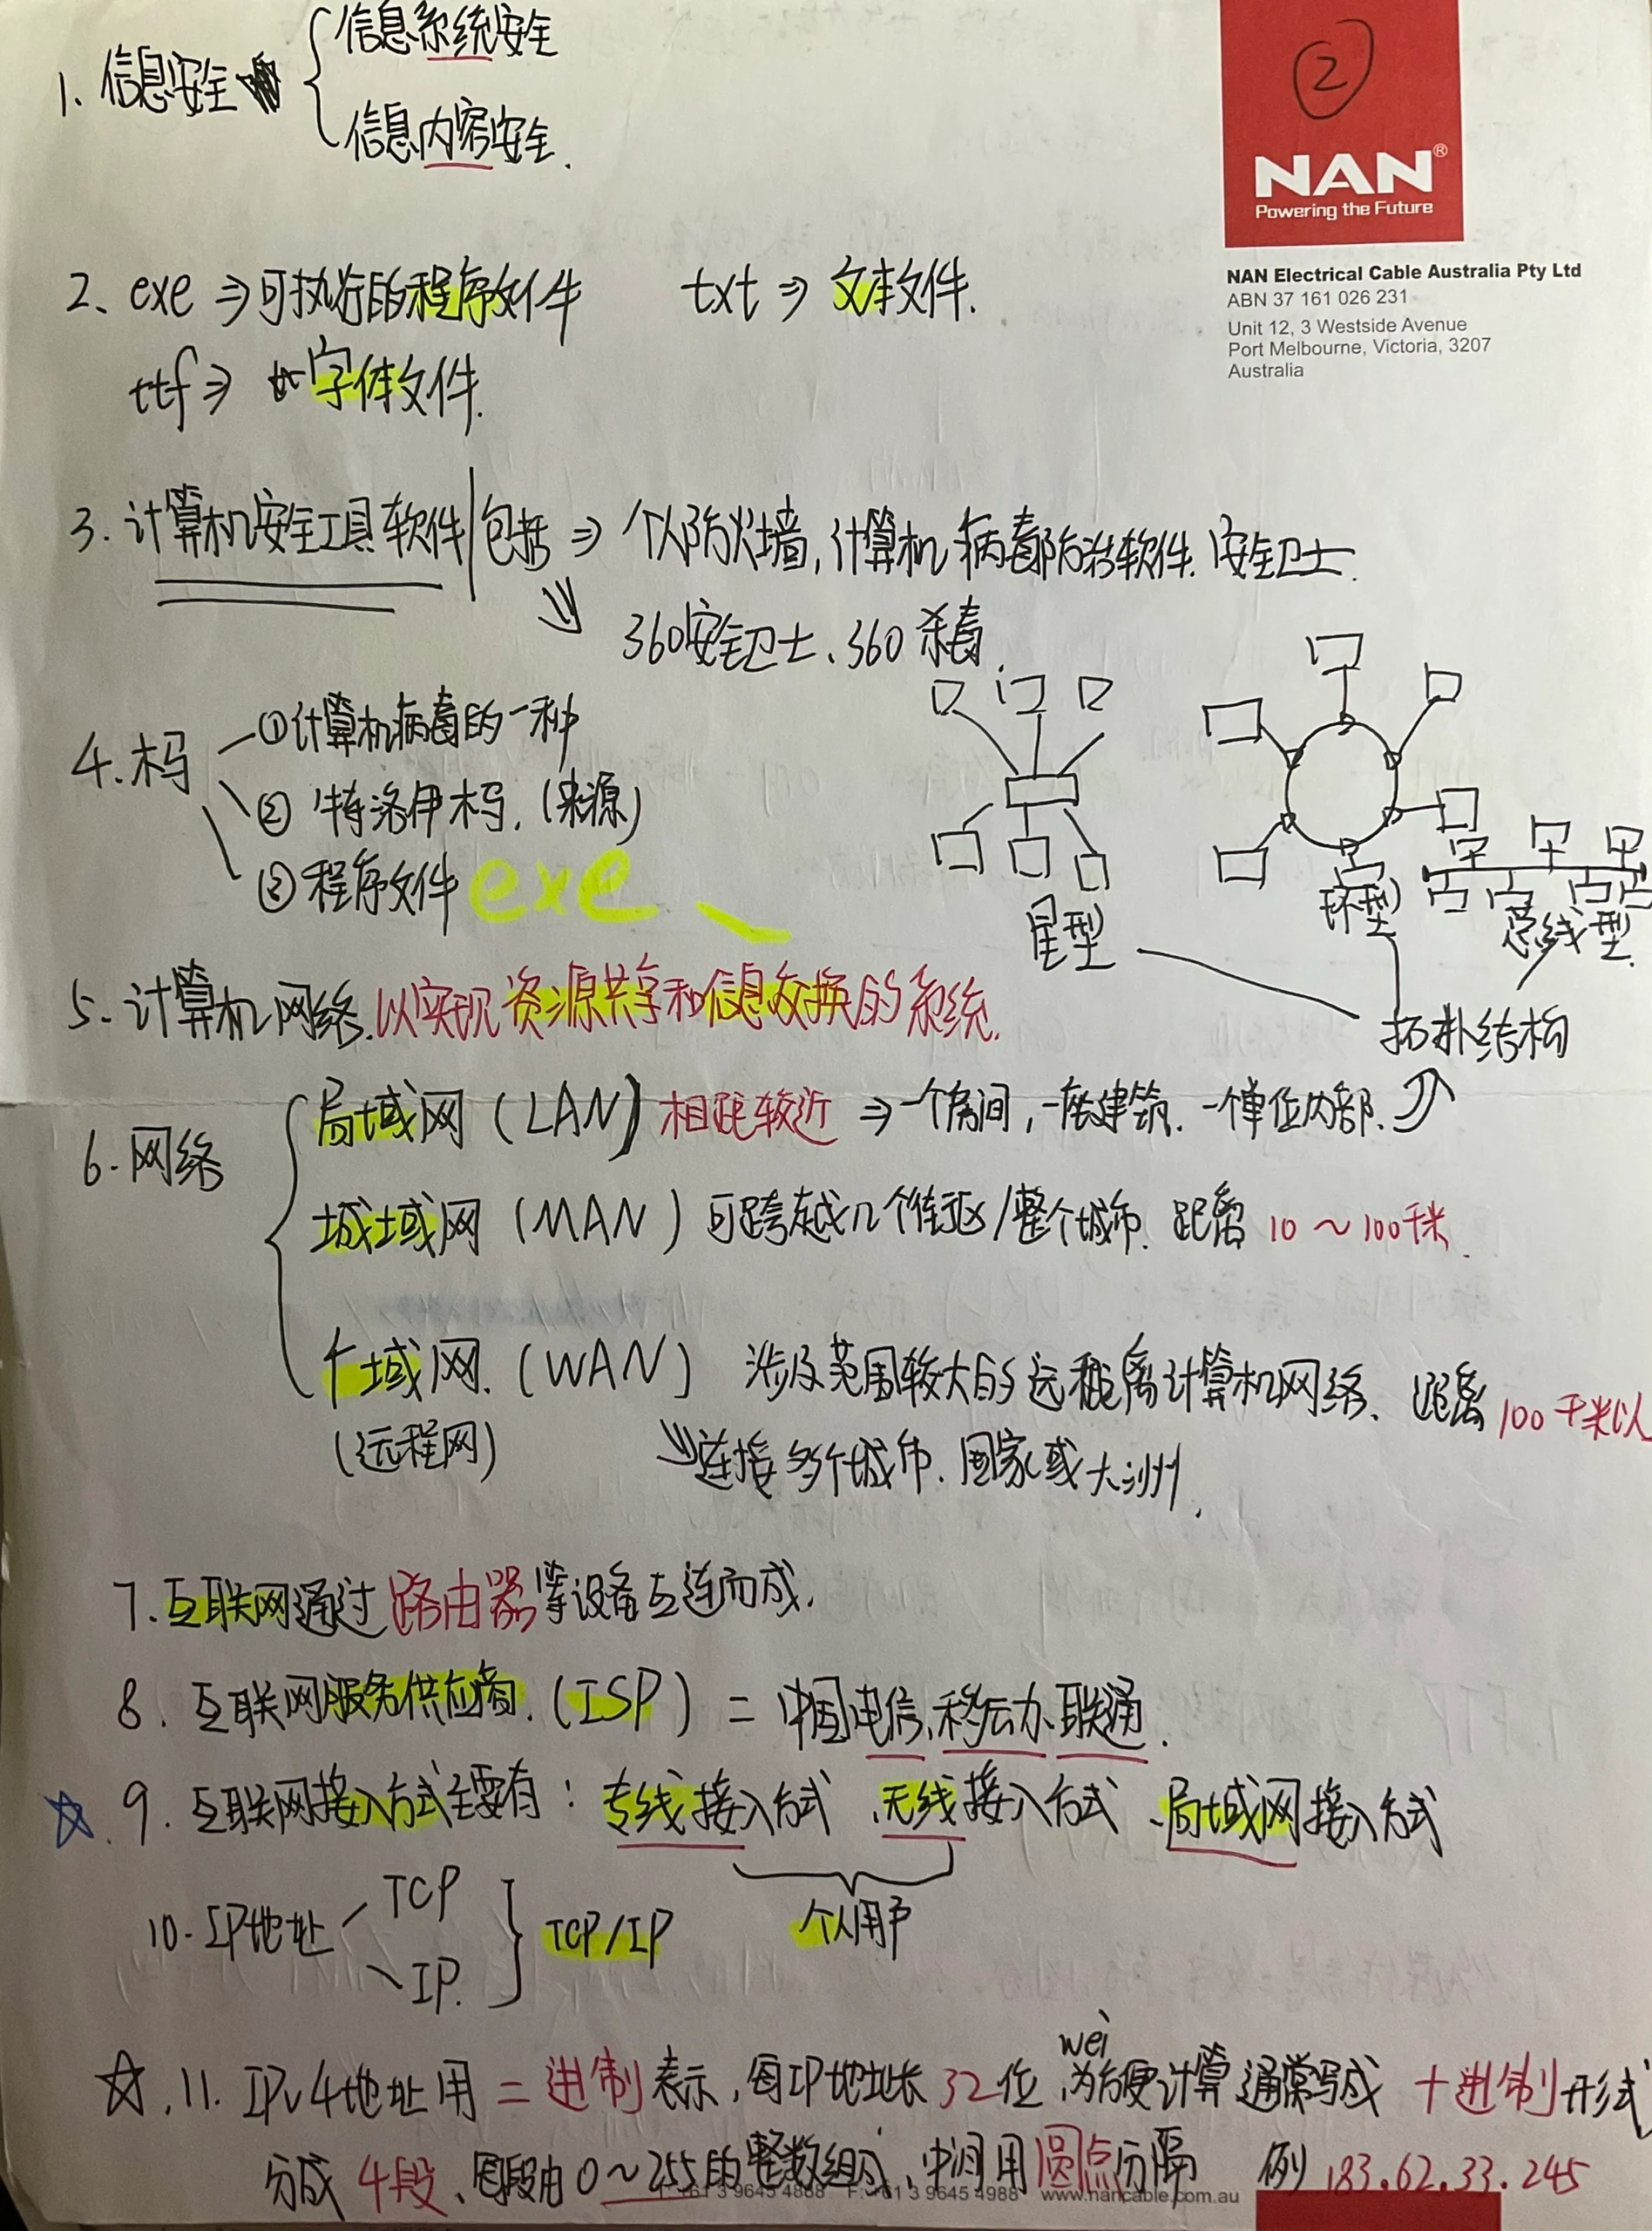 ②
NAN®
Powering the Future
NAN Electrical Cable Australia Pty Ltd
ABN 37 161 026 231
Unit 12, 3 Westside Avenue
Port Melbourne, Victoria, 3207
Australia
1、信息安全
信息系统安全
信息内容安全.
2、exe ⇒可执行的程序文件 txt ⇒ 文本文件.
ttf ⇒ 字体文件.
3. 计算机安全工具软件 包括 ⇒ 个人防火墙,计算机病毒防治软件. 安全卫士.
360安全卫士、360杀毒.
4.木马
①计算机病毒的一种
② 特洛伊木马.(来源)
③程序文件 exe
星型
环型
总线型.
拓扑结构
5.计算机网络.以实现资源共享和信息交换的系统.
6.网络
局域网(LAN)相距较近 ⇒一个房间,一座建筑. 一个单位内部.
城域网(MAN)可跨越几个街区/整个城市. 距离 10~100千米.
广域网.(WAN) 涉及范围较大的远距离计算机网络、距离100千米以
(远程网)
连接多个城市.国家或大洲.
7.互联网通过路由器等设备互连而成.
8.互联网服务供应商.(ISP)= 中国电信、移动、联通.
☆.9.互联网接入方式主要有:专线接入方式、无线接入方式、局域网接入方式
个人用户
10.IP地址
TCP
IP.
TCP/IP
wei
☆.11.IPv4地址用二进制表示,每IP地址长32位,为方便计算通常写成 十进制形式
分成4段、每段由0~255的整数组成、中间用圆点分隔 例183.62.33.245
T: +61 3 9645 4888 F: +61 3 9645 4988 www.nancable.com.au